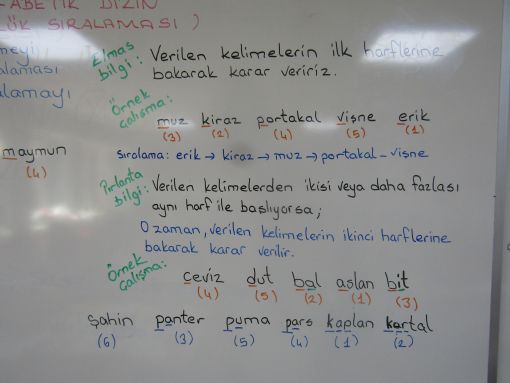 ABETİK DİZİN
LÜK SIRALAMASI)
Elmas bilgi: Verilen kelimelerin ilk harflerine
bakarak karar veririz.
Örnek Çalışma:
muz kiraz portakal vişne erik
(3) (2) (4) (5) (1)
maymun
(4)
Sıralama: erik → kiraz → muz → portakal - vişne
Pırlanta bilgi: Verilen kelimelerden ikisi veya daha fazlası
aynı harf ile başlıyorsa;
O zaman, verilen kelimelerin ikinci harflerine
bakarak karar verilir.
Örnek Çalışma:
ceviz dut bal aslan bit
(4) (5) (2) (1) (3)
şahin panter puma pars kaplan kartal
(6) (3) (5) (4) (1) (2)